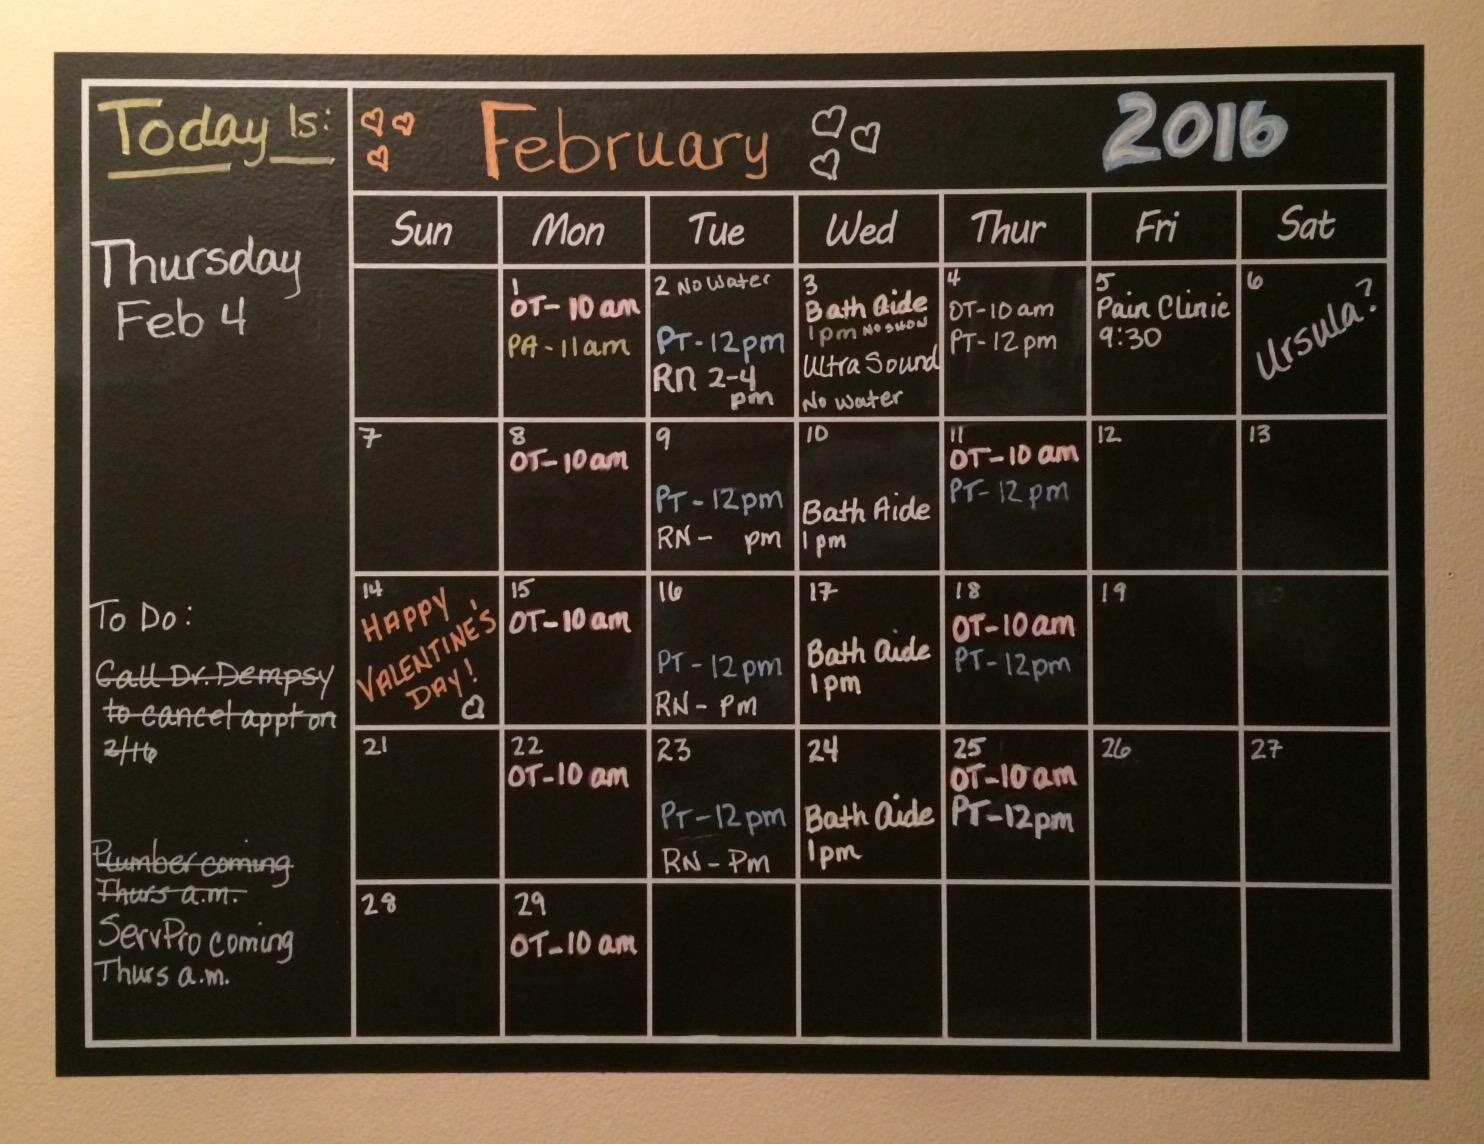 Today Is:
February
2016
Thursday
Feb 4
Sun Mon Tue Wed Thur Fri Sat
1
OT- 10 am
PA - 11am
2 No Water
PT-12pm
RN 2-4
pm
3
Bath Aide
1pm No Show
Ultra Sound
No Water
4
OT-10 am
PT-12 pm
5
Pain Clinic
9:30
6
Ursula?
7
8
OT-10am
9
PT-12pm
RN- pm
10
Bath Aide
1pm
11
OT-10 am
PT-12 pm
12
13
14
HAPPY
VALENTINE'S
DAY!
15
OT-10am
16
PT-12pm
RN- Pm
17
Bath Aide
1pm
18
OT-10am
PT-12pm
19
21
22
OT-10 am
23
PT-12pm
RN- Pm
24
Bath Aide
1pm
25
OT-10am
PT-12pm
26
27
28
29
OT-10 am
To Do:
Call Dr. Dempsy
to cancel appt on
2/16
Plumber coming
Thurs a.m.
ServPro coming
Thurs a.m.